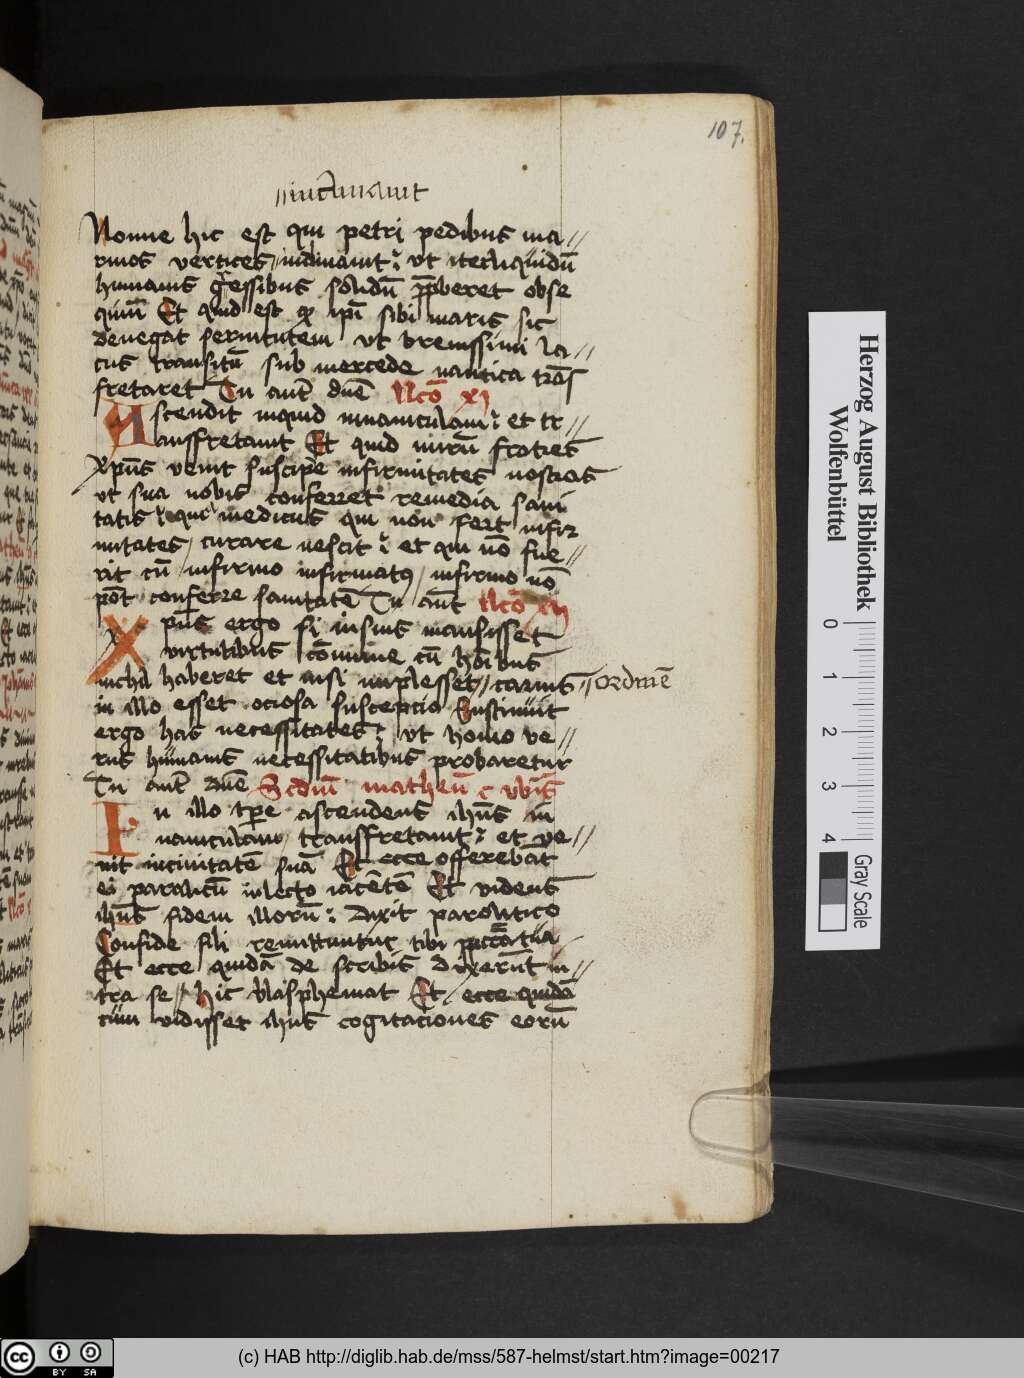 107.
//incuruauit
Nonne hic est qui petri pedibus ma//
rinos vertices //inclinauit ut iter liquidū
humanis gressibus solidū pberet obse
quiū Et quid est qꝫ ipī sibi maris sic
denegat seruitutem ut breuissimi la//
cus transitū sub mercede nautica trās
fretaret Tu aut dnē Lcō xi
Ascendit inquid in nauiculam et tr//
ansfretauit Et quid mirū fratres
Xpus venit suscipe infirmitates nostras
ut sua nobis conferret remedia sani
tatis quia medicus qui non fert infir
mitates curare nescit et qui nō fue//
rit cū infirmo infirmatꝰ infirmo nō
pōt conferre sanitatē Tu aut Lcō xii
Xpus ergo si in suis mansisset
virtutibus cōmune cū hōibus
nichil haberet et nisi implesset// carnis //ordinē
in illo esset ociosa susceptio Sustinuit
ergo has necessitates ut homo ve//
rus humanis necessitatibus probaretur
Tu aut dnē Scdm matheū c vbis
In illo tpe ascendens ihus in
nauiculam transfretauit et ve//
nit in ciuitatē suā Et ecce offerebāt
ei paraliticū in lecto iacētē Et videns
ihus fidem illorū Dixit paralitico
Confide fili remittuntur tibi pccāta tua
Et ecce quidā de scribis dixerūt in//
tra se hic blasphemat Et ecce quidā
cum vidisset ihus cogitationes eorū
Herzog August Bibliothek
Wolfenbüttel
0 1 2 3 4
Gray Scale
cc BY SA
(c) HAB http://diglib.hab.de/mss/587-helmst/start.htm?image=00217